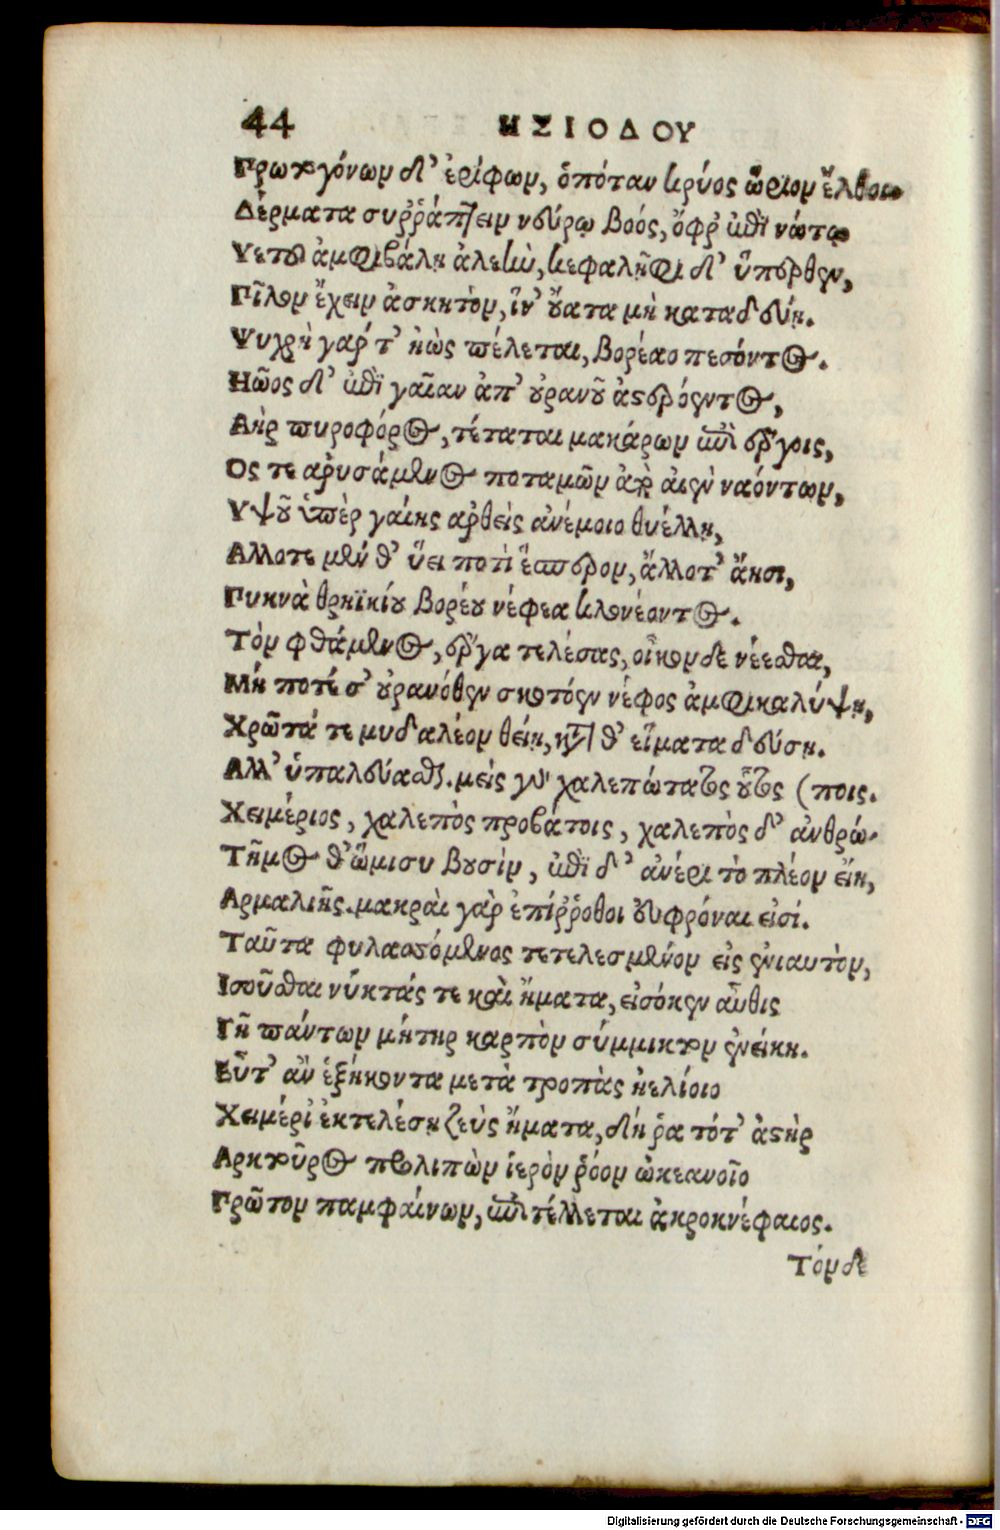 44 ΗΣΙΟΔΟΥ
Πρωτογόνων δ' ἐρίφων, ὁπόταν κρύος ὥριον ἔλθοι
Δέρματα συῤῥάπτειν νεύρῳ βοός, ὄφρ' ἐπὶ νώτῳ
Υετοῦ ἀμφιβάλῃ ἀλεὼ, κεφαλῆφι δ' ὕπερθεν,
Πῖλον ἔχειν ἀσκητὸν, ἵν' οὔατα μὴ καταδεύῃ.
Ψυχρὴ γάρ τ' ἠὼς πέλεται, βορέαο πεσόντος.
Ηῶος δ' ἐπὶ γαῖαν ἀπ' οὐρανοῦ ἀστερόεντος,
Αὴρ πυροφόρος, τέταται μακάρων ἐπὶ ἔργοις,
Ος τε ἀρυσάμενος ποταμῶν ἀπὸ ἀιενὰόντων,
Υψοῦ ὑπὲρ γαίης ἀρθεὶς ἀνέμοιο θυέλλῃ,
Αλλοτε μέν θ' ὕει ποτὶ ἕσπερον, ἄλλοτ' ἄησι,
Πυκνὰ θρηϊκίου βορέου νέφεα κλονέοντος.
Τὸν φθάμενος, ἔργα τελέσας, οἶκον δε νέεσθαι,
Μή ποτέ σ' οὐρανόθεν σκοτόεν νέφος ἀμφικαλύψῃ,
Χρῶτά τε μυδαλέον θείῃ, κατά θ' εἵματα δεύσῃ.
Αλλ' ὑπαλεύασθαι. μεὶς γὰρ χαλεπώτατος οὗτος (ποις.
Χειμέριος, χαλεπὸς προβάτοις, χαλεπὸς δ' ἀνθρώ-
Τῆμος θ' ὥμισυ βουσὶν, ἐπὶ δ' ἀνέρι τὸ πλέον εἴη,
Αρμαλιῆς. μακραὶ γὰρ ἐπίῤῥοθοι εὐφρόναι εἰσί.
Ταῦτα φυλασσόμενος τετελεσμένον εἰς ἐνιαυτὸν,
Ισοῦσθαι νύκτάς τε καὶ ἤματα, εἰσόκεν αὖθις
Γῆ πάντων μήτηρ καρπὸν σύμμικτον ἐνείκῃ.
Εὖτ' ἂν ἑξήκοντα μετὰ τροπὰς ἠελίοιο
Χειμέρι' ἐκτελέσῃ ζεὺς ἤματα, δή ῥα τότ' ἀστὴρ
Αρκτοῦρος προλιπὼν ἱερὸν ῥόον ὠκεανοῖο
Πρῶτον παμφαίνων, ἐπιτέλλεται ἀκροκνέφαιος.
Τόνδε
Digitalisierung gefördert durch die Deutsche Forschungsgemeinschaft - DFG